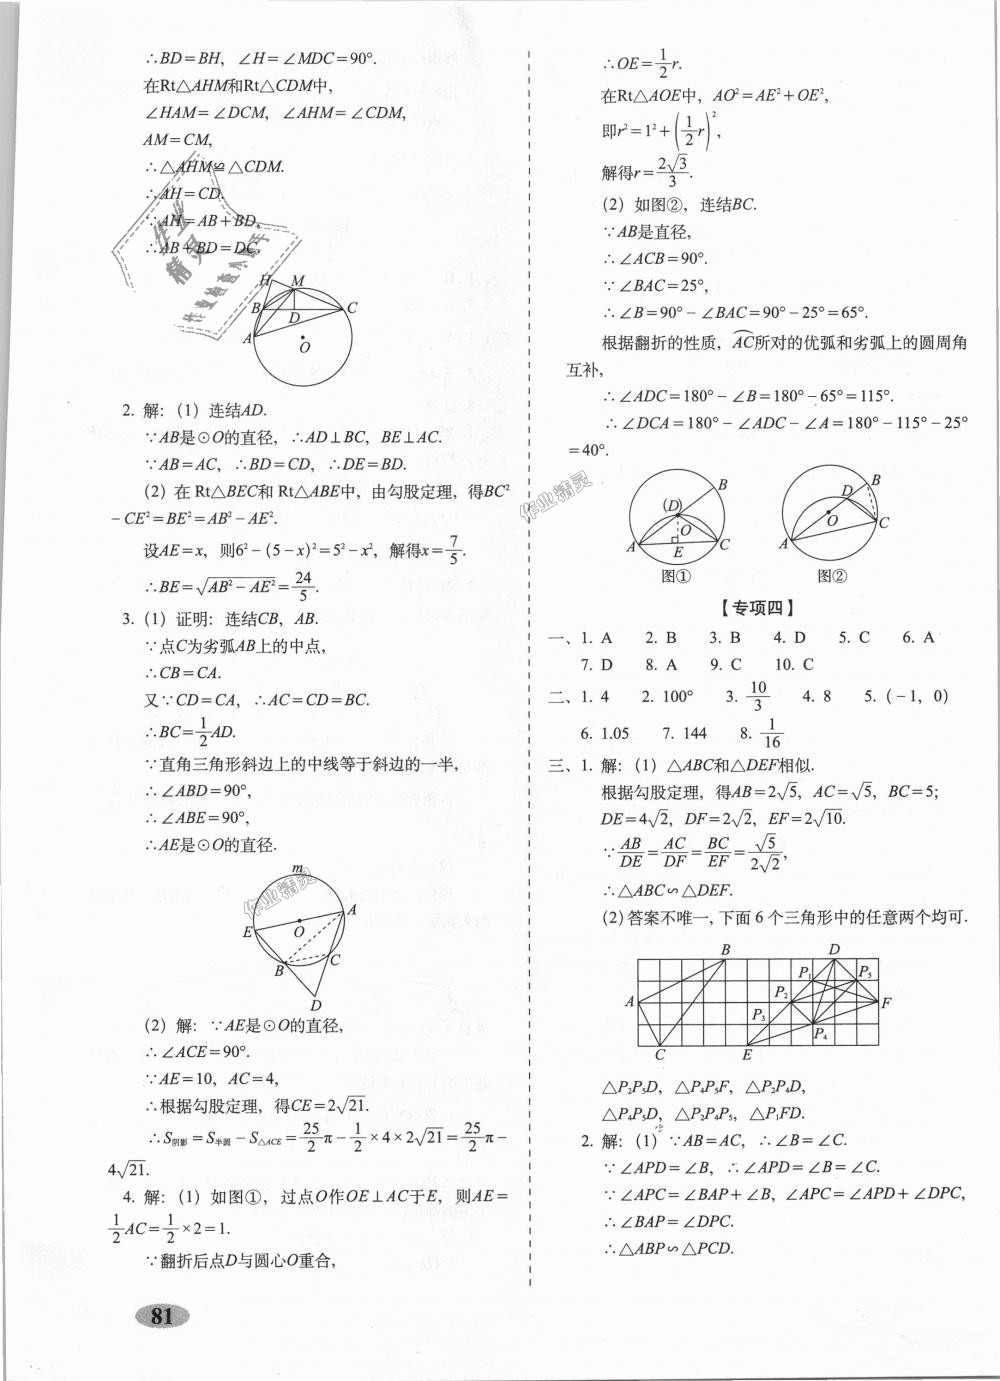 ∴BD=BH, ∠H=∠MDC=90°.
在Rt△AHM和Rt△CDM中,
∠HAM=∠DCM, ∠AHM=∠CDM,
AM=CM,
∴△AHM≌△CDM.
∴AH=CD.
∵AH=AB+BD,
∴AB+BD=DC.
H M
B D C
A O
2. 解:(1)连结AD.
∵AB是⊙O的直径, ∴AD⊥BC, BE⊥AC.
∵AB=AC, ∴BD=CD, ∴DE=BD.
(2)在 Rt△BEC和 Rt△ABE中, 由勾股定理, 得BC²
−CE²=BE²=AB²−AE².
设AE=x, 则6²−(5−x)²=5²−x², 解得x=7/5.
∴BE=√(AB²−AE²)=24/5.
3. (1)证明: 连结CB, AB.
∵点C为劣弧AB上的中点,
∴CB=CA.
又∵CD=CA, ∴AC=CD=BC.
∴BC=1/2AD.
∵直角三角形斜边上的中线等于斜边的一半,
∴∠ABD=90°,
∴∠ABE=90°,
∴AE是⊙O的直径.
m
A
E O
B C
D
(2)解: ∵AE是⊙O的直径,
∴∠ACE=90°.
∵AE=10, AC=4,
∴根据勾股定理, 得CE=2√21.
∴S阴影=S半圆−S△ACE=25/2π−1/2×4×2√21=25/2π−
4√21.
4. 解:(1)如图①, 过点O作OE⊥AC于E, 则AE=
1/2AC=1/2×2=1.
∵翻折后点D与圆心O重合,
81
∴OE=1/2r.
在Rt△AOE中, AO²=AE²+OE²,
即r²=1²+(1/2r)²,
解得r=2√3/3.
(2)如图②, 连结BC.
∵AB是直径,
∴∠ACB=90°.
∵∠BAC=25°,
∴∠B=90°−∠BAC=90°−25°=65°.
根据翻折的性质, AC所对的优弧和劣弧上的圆周角
互补,
∴∠ADC=180°−∠B=180°−65°=115°.
∴∠DCA=180°−∠ADC−∠A=180°−115°−25°
=40°.
B (D) O A E C
B D O A C
图① 图②
【专项四】
一、1. A 2. B 3. B 4. D 5. C 6. A
7. D 8. A 9. C 10. C
二、1. 4 2. 100° 3. 10/3 4. 8 5. (−1, 0)
6. 1.05 7. 144 8. 1/16
三、1. 解:(1)△ABC和△DEF相似.
根据勾股定理, 得AB=2√5, AC=√5, BC=5;
DE=4√2, DF=2√2, EF=2√10.
∵AB/DE=AC/DF=BC/EF=√5/2√2,
∴△ABC∽△DEF.
(2)答案不唯一, 下面 6 个三角形中的任意两个均可.
B D
P₁ P₅
A P₂ F
P₃ P₄
C E
△P₂P₅D, △P₄P₅F, △P₂P₄D,
△P₄P₅D, △P₂P₄P₅, △P₁FD.
2. 解:(1)∵AB=AC, ∴∠B=∠C.
∵∠APD=∠B, ∴∠APD=∠B=∠C.
∵∠APC=∠BAP+∠B, ∠APC=∠APD+∠DPC,
∴∠BAP=∠DPC.
∴△ABP∽△PCD.
作业精灵
作业精灵
作业精灵